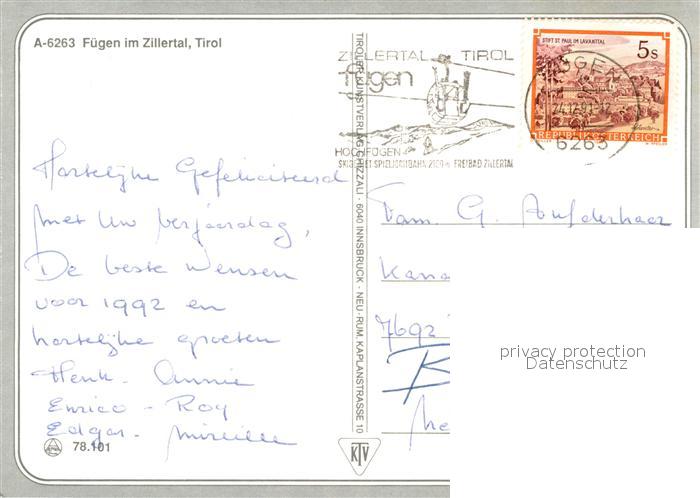 A-6263 Fügen im Zillertal, Tirol
ZILLERTAL TIROL
fügen
HOCHFÜGEN
FREIBAD ZILLERTAL
STIFT ST. PAUL IM LAVANTTAL
5s
REPUBLIK ÖSTERREICH
FÜGEN
24.12.91-12
6263
Hartelijke Gefeliciteerd
met Uw verjaardag,
De beste wensen
voor 1992 en
hartelijke groeten
Henk - Annie
Enrico - Roy
Edgar - Mireille
78.101
TIROLER KUNSTVERLAG CHIZZALI · 6040 INNSBRUCK - NEU-RUM, KAPLANSTRASSE 10
KTV
Fam. G.
Kana
7692
B
privacy protection
Datenschutz